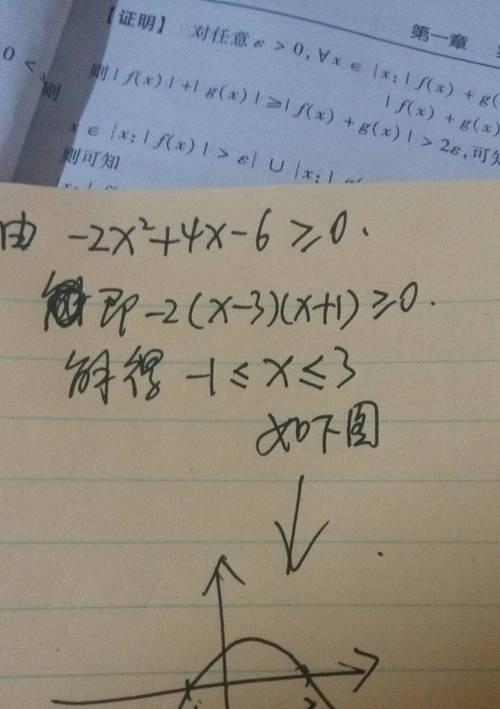 【证明】 对任意ε>0,∀x∈{x:|f(x)+g(
第一章
|f(x)+g(x)
则|f(x)|+|g(x)|≥|f(x)+g(x)|>2ε,可知
x∈{x:|f(x)|>ε}∪{x:|
则可知
0<
则
由 -2x²+4x-6≥0.
即-2(x-3)(x+1)≥0.
解得 -1≤x≤3
如下图